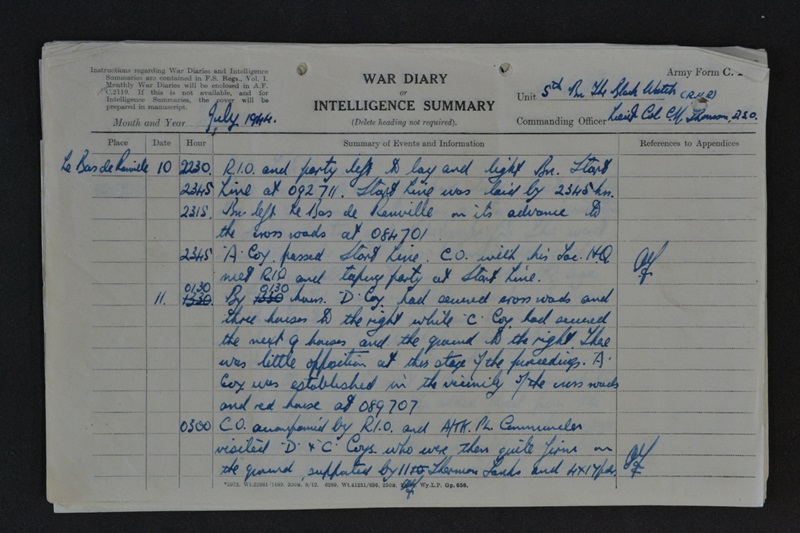 Instructions regarding War Diaries and Intelligence
Summaries are contained in F.S. Regs., Vol. I.
Monthly War Diaries will be enclosed in A.F.
C.2119. If this is not available, and for
Intelligence Summaries, the cover will be
prepared in manuscript.
Month and Year July, 1944.
WAR DIARY
OR
INTELLIGENCE SUMMARY
(Delete heading not required).
Army Form C.
Unit 5th Bn The Black Watch (R.H.R)
Commanding Officer Lieut Col C.N. Thomson, D.S.O.
Place Date Hour Summary of Events and Information References to Appendices
Le Bas de Ranville 10 2230. R.I.O. and party left to lay and light Bn. Start
2345 Line at 092711. Start Line was laid by 2345 hrs.
2315. Bn left Le Bas de Ranville on its advance to
the cross roads at 084701
2345 'A' Coy passed Start Line. C.O. with his Tac. HQ
met R.I.O and taping party at Start Line.
0130 0130
11. 1330. By 1330 hours. 'D' Coy. had secured cross roads and
three houses to the right while 'C' Coy had secured
the next 9 houses and the ground to the right. There
was little opposition at this stage of the proceedings. 'A'
Coy was established in the vicinity of the cross roads
and red house at 089707
0300 C.O. accompanied by R.I.O. and A/TK. Pl. Commander
visited 'D' & 'C' Coys. who were then quite firm on
the ground, supported by 11 Sherman Tanks and 4x17 pdrs